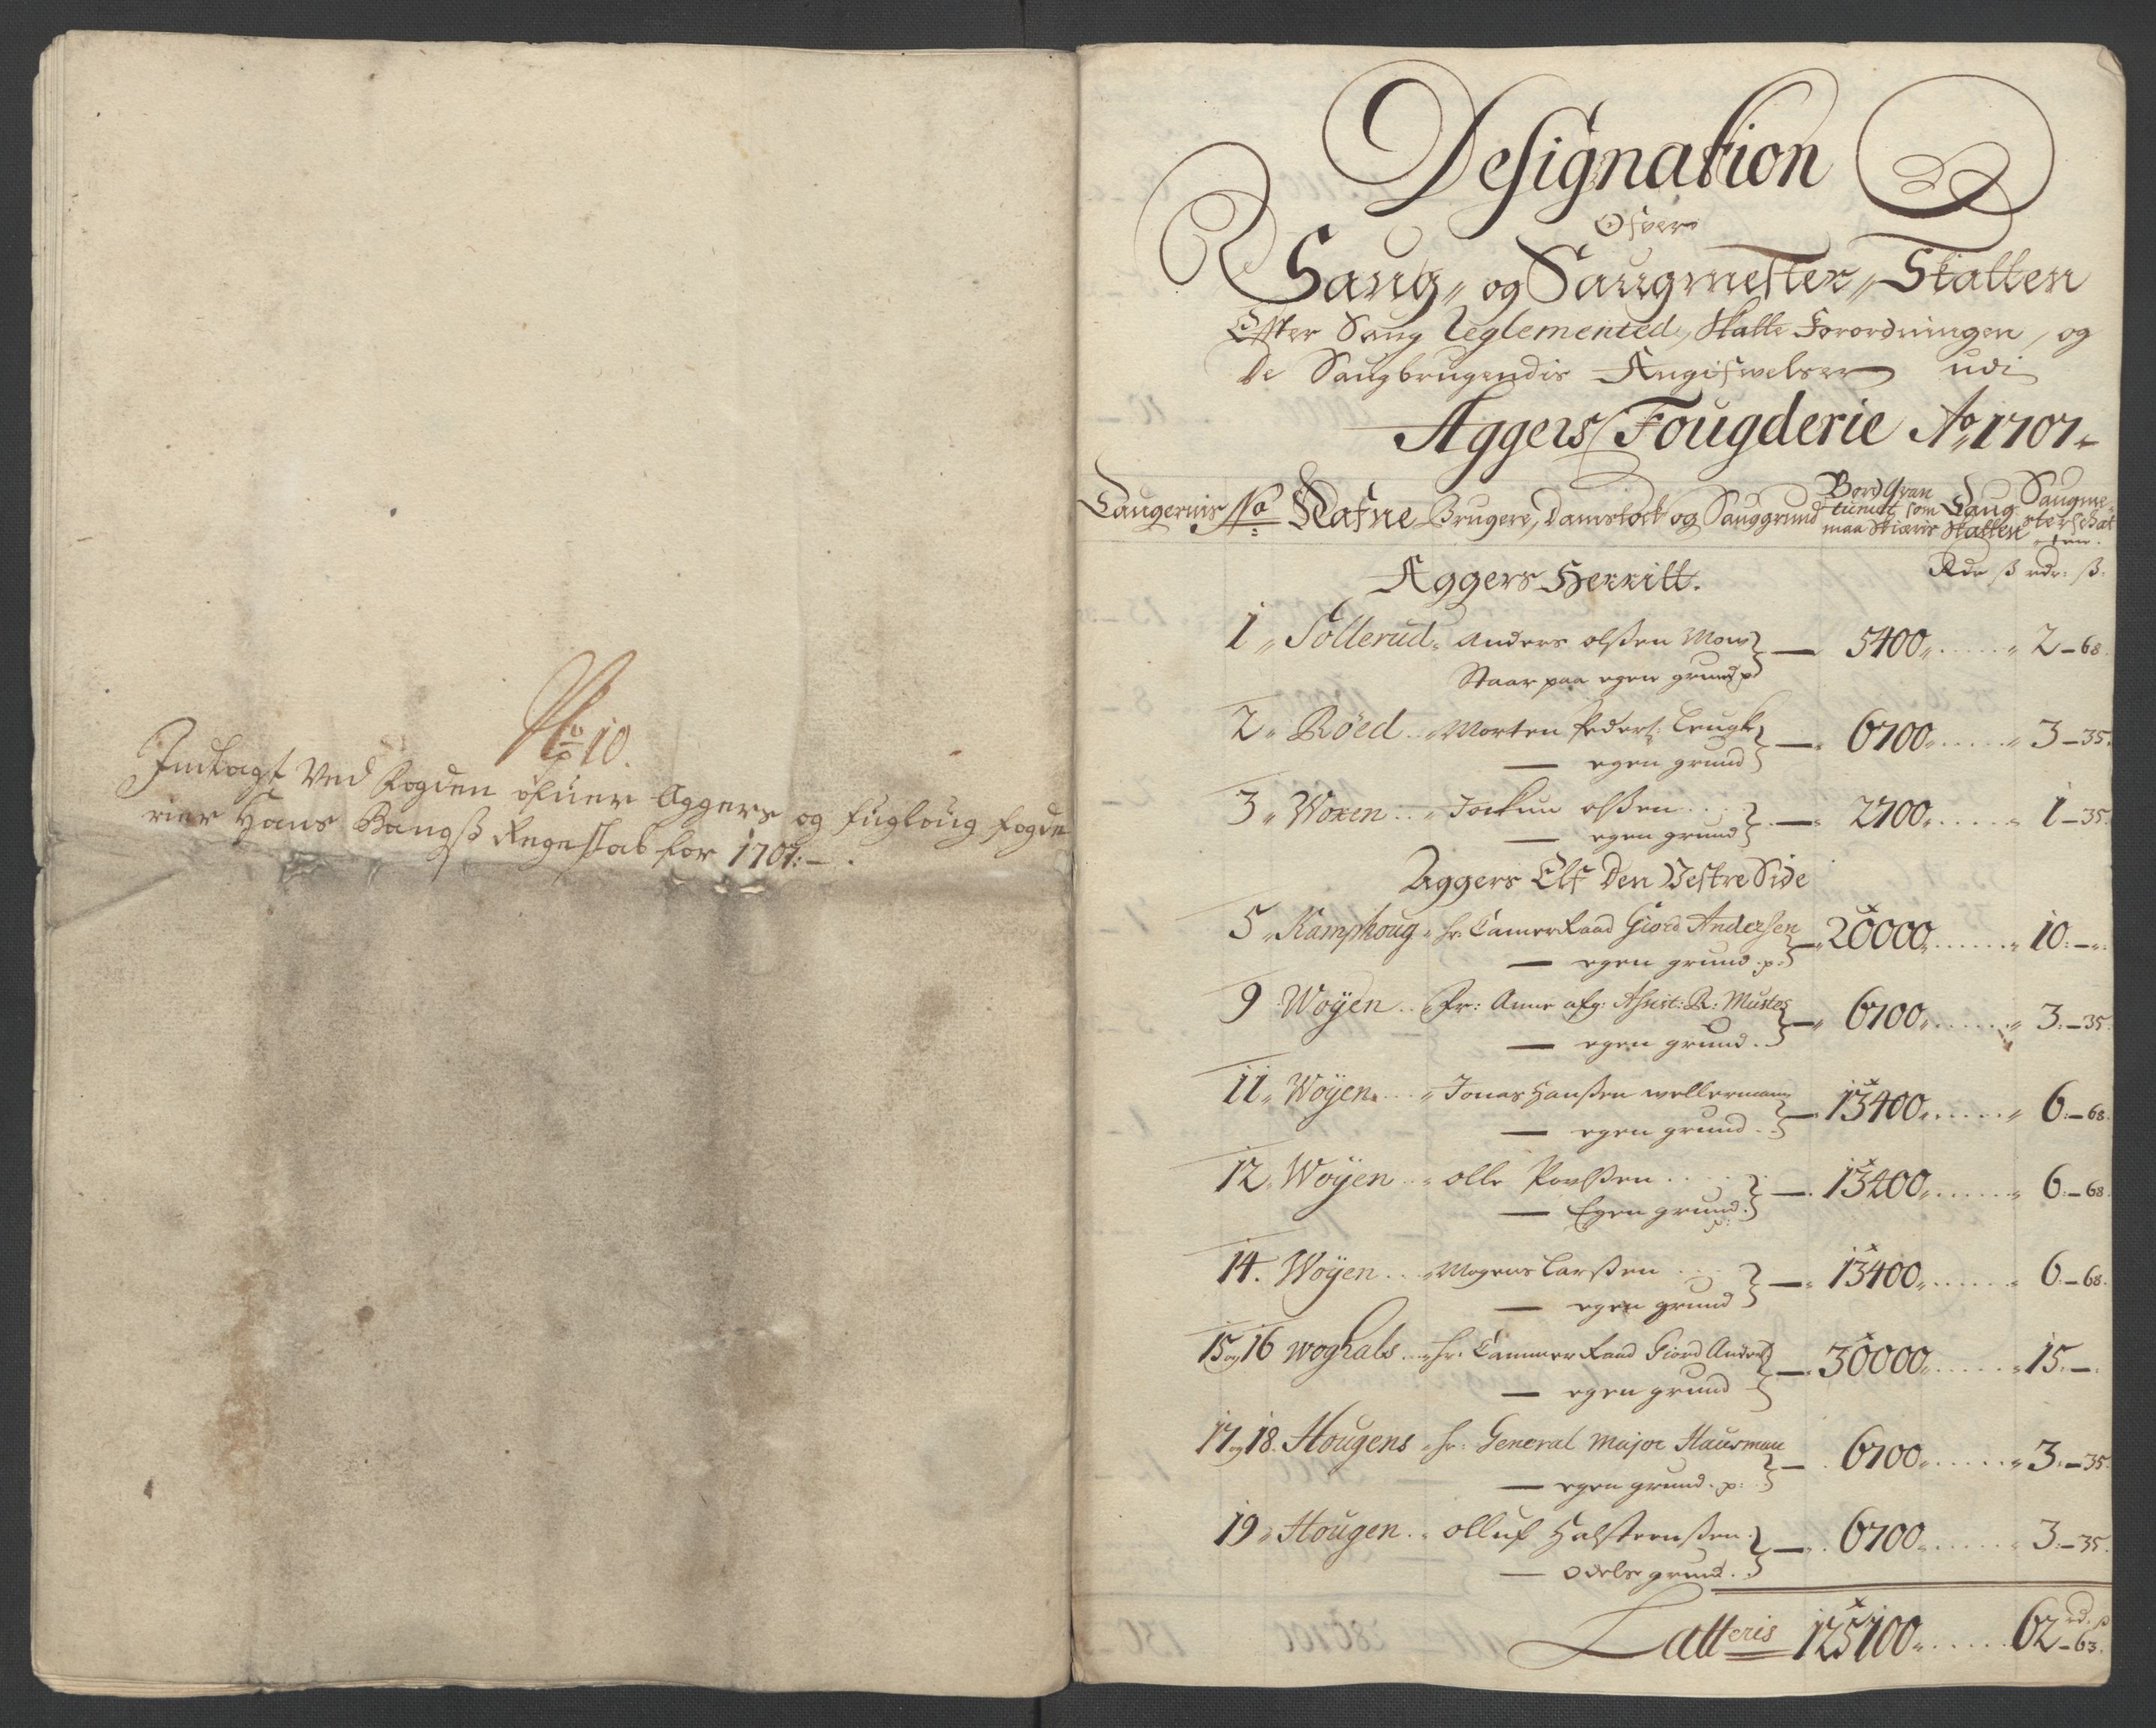 No 10.
Indlagt Ved Fogden ofuer Aggers og fugloug fogde
rier Hans Bangß Regeskab for 1701:–.
Designation
Ofver
Saug„ og Saugmester„ Skatten
Efter Saug Reglemented, Skatte Forordningen, og
De Saugbrugendis Angifvelser udi
Aggers Fougderie Ao 1701
Saugernis No Nafne Brugere, Damstock og Sauggrund
Bord Qvantumet som maa Skiæris
Saug Skatten
Saugmesterschatten.
Aggers Herritt. Rdr ß rdr: ß:
1„ Sollerud„ Anders olßen Mow
Staar paa egen grund — 5400„ 2–68.
2„ Röed „ Morten Peders: Leuch
— egen grund — 6700 3–35.
3„ Woxen „ Jockum olßen
— egen grund — 2700„ 1–35.
Aggers Elf Den Vestre Side
5„ Kamphoug „ hr. CamerRaad Giord Andersen
— egen grund — 20000„ 10:–„
9 Woÿen Fr: Anne afg: Assist: R: Mustes
— egen grund — 6700„ 3:–35.
11„ Woÿen „ Jonas Hanßen wellermann
— egen grund — 13400„ 6:–68.
12„ Woÿen „ olle Povlßen
— Egen grund — 13400„ 6:–68.
14. Woÿen „ Mogens Larßen
— egen grund — 13400„ 6:–68.
15 og 16 Woghals „ hr: Cammer Raad Giord Anders
— egen grund — 30000„ 15:–
17 og 18. Hougens „ hr: General Major Hausman
— egen grund — 6700„ 3:–35.
19„ Hougen „ olluf Halsteenßen
— odels grund — 6700„ 3:–35.
Latteris 125100„ 62 rd – 63 ß